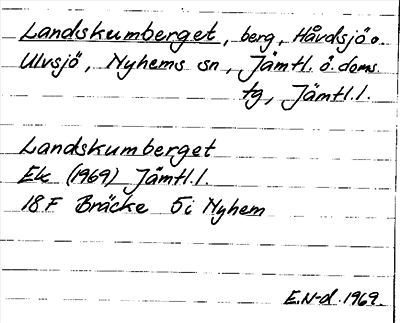 Landskumberget, berg, Håvdsjö o.
Ulvsjö, Nyhems sn, Jämtl. ö. doms.
tg, Jämtl. l.
Landskumberget
Ek (1969) Jämtl. l.
18 F Bräcke 5 i Nyhem
E.N-d. 1969.